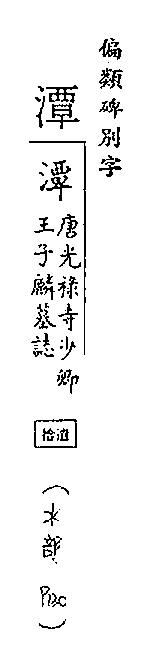 偏類碑別字
潭
潭
唐光祿寺少卿
王子麟墓誌
(水部